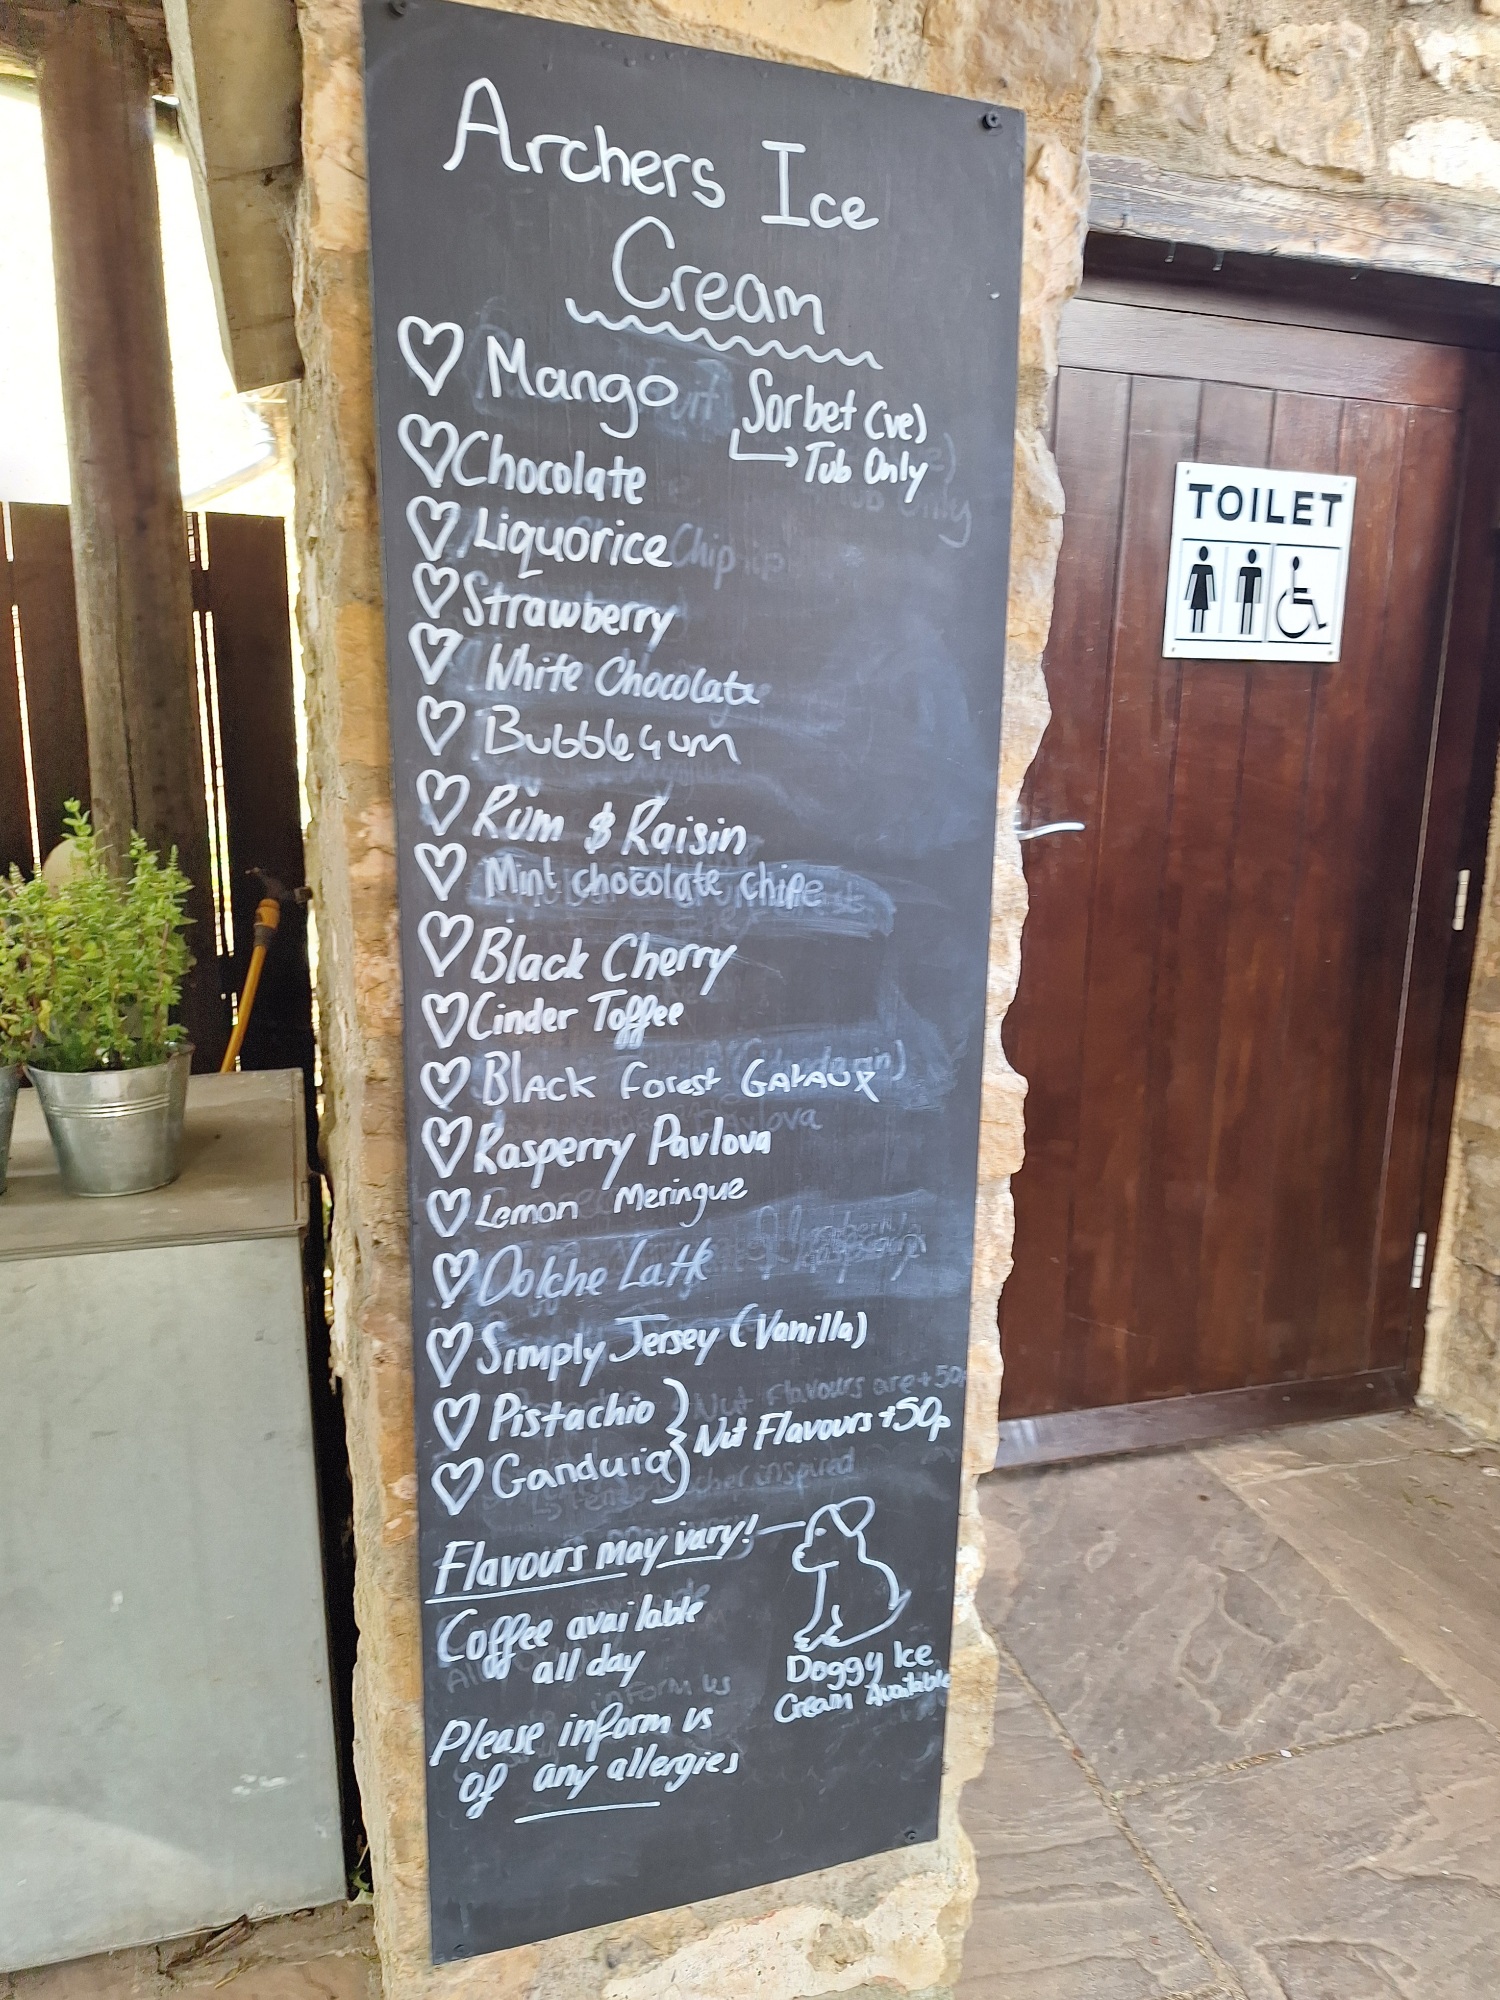 Archers Ice
Cream
Mango Sorbet (ve)
Tub Only
Chocolate
Liquorice
Strawberry
White Chocolate
BubbleGum
Rum & Raisin
Mint chocolate chipe
Black Cherry
Cinder Toffee
BLACK Forest GATAUX
Rasperry Pavlova
Lemon Meringue
Dolche Latte
Simply Jersey (Vanilla)
Pistachio
Ganduia
Nut Flavours +50p
Flavours may vary!
Coffee available
all day
Doggy Ice
Cream Available
Please inform us
of any allergies
TOILET